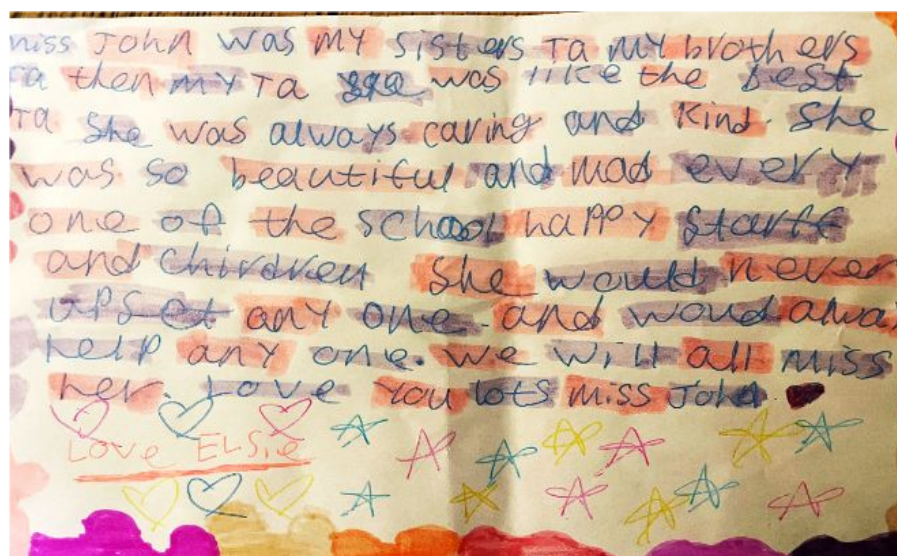 miss John was MY sisters Ta MY brothers
Ta then MY Ta she was like the best
Ta she was always caring and kind. she
was so beautiful and mad every
one of the school happy starff
and chirdren she would never
upset any one. and woud alway
help any one. we will all miss
her. Love you lots miss John.
Love ELSie